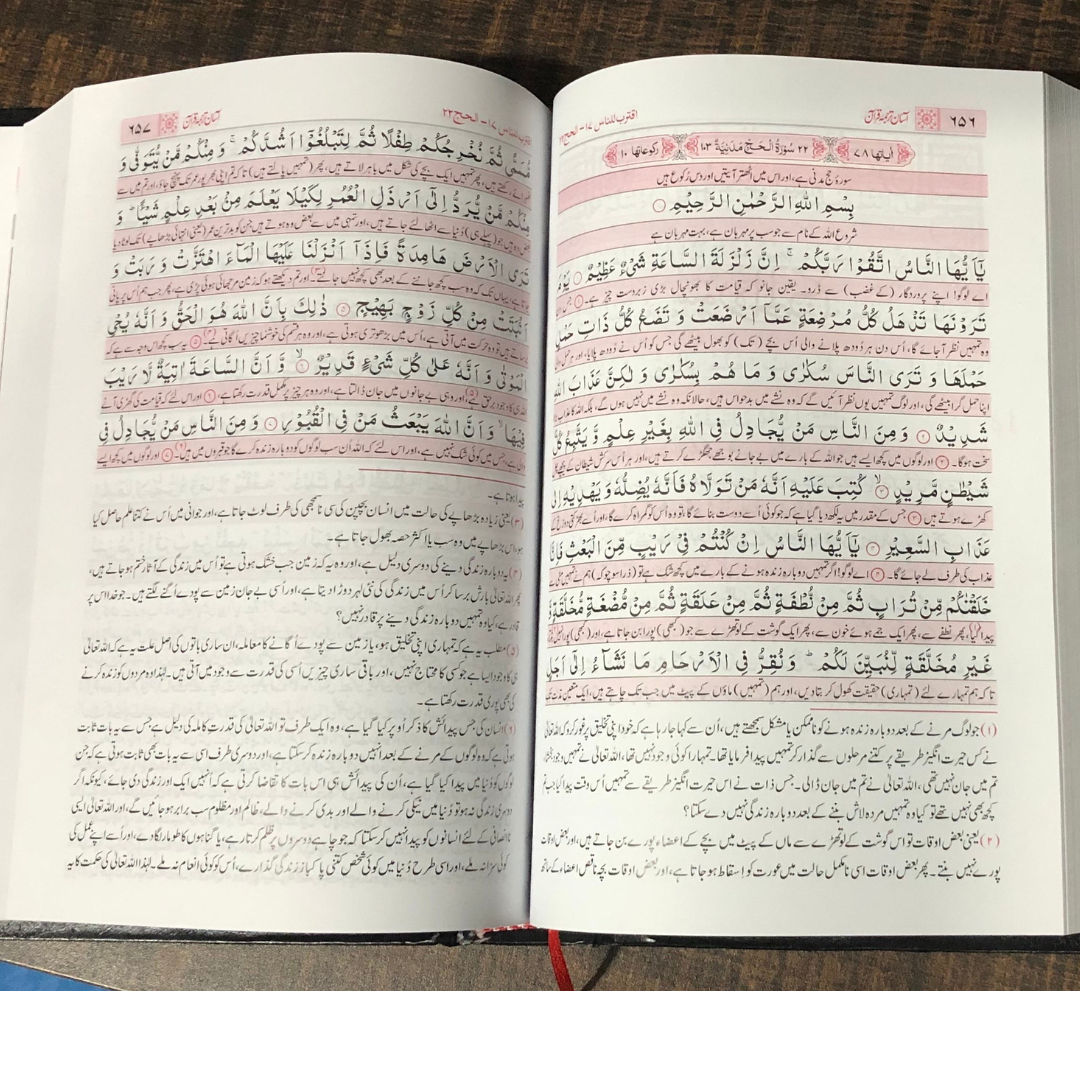 ٦٥٦
آسان ترجمۂ قرآن
اقترب للناس ١٧ - الحج ٢٢
اٰیاتها ٧٨
٢٢ سُوْرَةُ الْحَجِّ مَدَنِيَّةٌ ١٠٣
رکوعاتها ١٠
سورۂ حج مدنی ہے، اور اس میں اٹھتر آیتیں اور دس رُکوع ہیں
بِسْمِ اللهِ الرَّحْمٰنِ الرَّحِيْمِ
شروع اللہ کے نام سے جو سب پر مہربان ہے، بہت مہربان ہے
يٰۤاَيُّهَا النَّاسُ اتَّقُوْا رَبَّكُمْ ۚ اِنَّ زَلْزَلَةَ السَّاعَةِ شَيْءٌ عَظِيْمٌ ① يَوْمَ
اے لوگو! اپنے پروردگار (کے غضب) سے ڈرو۔ یقین جانو کہ قیامت کا بھونچال بڑی زبردست چیز ہے۔ ① جس
تَرَوْنَهَا تَذْهَلُ كُلُّ مُرْضِعَةٍ عَمَّاۤ اَرْضَعَتْ وَ تَضَعُ كُلُّ ذَاتِ حَمْلٍ
وہ تمہیں نظر آجائے گا، اُس دن ہر دُودھ پلانے والی اُس بچے (تک) کو بھول بیٹھے گی جس کو اُس نے دُودھ پلایا، اور ہر
حَمْلَهَا وَ تَرَى النَّاسَ سُكٰرٰى وَ مَا هُمْ بِسُكٰرٰى وَ لٰكِنَّ عَذَابَ اللهِ
اپنا حمل گرا بیٹھے گی، اور لوگ تمہیں یوں نظر آئیں گے کہ وہ نشے میں بدحواس ہیں، حالانکہ وہ نشے میں نہیں ہوں گے، بلکہ اللہ کا عذاب
شَدِيْدٌ ② وَ مِنَ النَّاسِ مَنْ يُّجَادِلُ فِي اللهِ بِغَيْرِ عِلْمٍ وَّ يَتَّبِعُ كُلَّ
سخت ہوگا۔ ② اور لوگوں میں کچھ ایسے ہیں جو اللہ کے بارے میں بے جانے بوجھے جھگڑے کرتے ہیں، اور ہر اُس سرکش شیطان کے پیچھے
شَيْطٰنٍ مَّرِيْدٍ ③ۙ كُتِبَ عَلَيْهِ اَنَّهٗ مَنْ تَوَلَّاهُ فَاَنَّهٗ يُضِلُّهٗ وَ يَهْدِيْهِ اِلٰى
کھڑے ہوتے ہیں ③ جس کے مقدر میں یہ لکھ دیا گیا ہے کہ جو کوئی اُسے دوست بنائے گا، تو وہ اُس کو گمراہ کرے گا، اور اُسے
عَذَابِ السَّعِيْرِ ④ يٰۤاَيُّهَا النَّاسُ اِنْ كُنْتُمْ فِيْ رَيْبٍ مِّنَ الْبَعْثِ فَاِنَّا
عذاب کی طرف لے جائے گا۔ ④ اے لوگو! اگر تمہیں دوبارہ زندہ ہونے کے بارے میں کچھ شک ہے تو (ذرا سوچو کہ) ہم نے تمہیں
خَلَقْنٰكُمْ مِّنْ تُرَابٍ ثُمَّ مِنْ نُّطْفَةٍ ثُمَّ مِنْ عَلَقَةٍ ثُمَّ مِنْ مُّضْغَةٍ مُّخَلَّقَةٍ وَّ
پیدا کیا، پھر نطفے سے، پھر ایک جمے ہوئے خون سے، پھر ایک گوشت کے لوتھڑے سے جو (کبھی) پورا بن جاتا ہے، اور (کبھی) پورا نہیں
غَيْرِ مُخَلَّقَةٍ لِّنُبَيِّنَ لَكُمْ ؕ وَ نُقِرُّ فِي الْاَرْحَامِ مَا نَشَآءُ اِلٰۤى اَجَلٍ
تاکہ ہم تمہارے لئے (تمہاری) حقیقت کھول کر بتا دیں، اور ہم (تمہیں) ماؤں کے پیٹ میں جب تک چاہتے ہیں، ایک متعین مدت تک
(۱) جو لوگ مرنے کے بعد دوبارہ زندہ ہونے کو ناممکن یا مشکل سمجھتے ہیں، اُن سے کہا جا رہا ہے کہ خود اپنی تخلیق پر غور کرو کہ اللہ تعالیٰ
نے کس حیرت انگیز طریقے پر کتنے مرحلوں سے گذار کر تمہیں پیدا فرمایا تھا۔ تمہارا کوئی وجود نہیں تھا، اللہ تعالیٰ نے تمہیں وجود بخشا،
تم میں جان نہیں تھی، اللہ تعالیٰ نے تم میں جان ڈالی۔ جس ذات نے اس حیرت انگیز طریقے سے تمہیں اُس وقت پیدا کیا جب تم
کچھ بھی نہیں تھے تو کیا وہ تمہیں مردہ لاش بننے کے بعد دوبارہ زندگی نہیں دے سکتا؟
(۲) یعنی بعض اوقات تو اس گوشت کے لوتھڑے سے ماں کے پیٹ میں بچے کے اعضاء پورے بن جاتے ہیں، اور بعض اوقات
پورے نہیں بنتے۔ پھر بعض اوقات اسی نامکمل حالت میں عورت کو اِسقاط ہو جاتا ہے، اور بعض اوقات بچہ ناقص اعضاء کے ساتھ
٦٥٧
آسان ترجمۂ قرآن
اقترب للناس ١٧ - الحج ٢٢
مُّسَمًّى ثُمَّ نُخْرِجُكُمْ طِفْلًا ثُمَّ لِتَبْلُغُوْۤا اَشُدَّكُمْ ۚ وَ مِنْكُمْ مَّنْ يُّتَوَفّٰى وَ
رکھتے ہیں، پھر تمہیں ایک بچے کی شکل میں باہر لاتے ہیں، پھر (تمہیں پالتے ہیں) تاکہ تم اپنی بھرپور عمر تک پہنچ جاؤ، اور تم میں سے
مِنْكُمْ مَّنْ يُّرَدُّ اِلٰۤى اَرْذَلِ الْعُمُرِ لِكَيْلَا يَعْلَمَ مِنْۢ بَعْدِ عِلْمٍ شَيْـًٔا ؕ وَ
بعض وہ ہیں جو (پہلے ہی) دُنیا سے اُٹھا لئے جاتے ہیں، اور تمہی میں سے بعض وہ ہوتے ہیں جن کو بدترین عمر (یعنی انتہائی بڑھاپے) تک لوٹا دیا
تَرَى الْاَرْضَ هَامِدَةً فَاِذَاۤ اَنْزَلْنَا عَلَيْهَا الْمَآءَ اهْتَزَّتْ وَ رَبَتْ وَ
جاتا ہے، یہاں تک کہ وہ سب کچھ جاننے کے بعد بھی کچھ نہیں جانتے۔(۳) اور تم دیکھتے ہو کہ زمین مرجھائی ہوئی پڑی ہے، پھر جب ہم اُس پر پانی
اَنْۢبَتَتْ مِنْ كُلِّ زَوْجٍۭ بَهِيْجٍ ⑤ ذٰلِكَ بِاَنَّ اللهَ هُوَ الْحَقُّ وَ اَنَّهٗ يُحْيِ
برساتے ہیں تو وہ حرکت میں آتی ہے، اُس میں بڑھوتری ہوتی ہے، اور وہ ہر قسم کی خوشنما چیزیں اُگاتی ہے۔(۴) ⑤ یہ سب کچھ اس وجہ سے ہے کہ
الْمَوْتٰى وَ اَنَّهٗ عَلٰى كُلِّ شَيْءٍ قَدِيْرٌ ⑥ۙ وَّ اَنَّ السَّاعَةَ اٰتِيَةٌ لَّا رَيْبَ
اللہ ہی کا وجود برحق ہے،(۵) اور وہی بے جانوں میں جان ڈالتا ہے، اور وہ ہر چیز پر مکمل قدرت رکھتا ہے ⑥ اور اس لئے کہ قیامت کی گھڑی آنے
فِيْهَا ۙ وَ اَنَّ اللهَ يَبْعَثُ مَنْ فِي الْقُبُوْرِ ⑦ وَ مِنَ النَّاسِ مَنْ يُّجَادِلُ فِي
والی ہے، جس میں کوئی شک نہیں ہے، اور اس لئے کہ اللہ اُن سب لوگوں کو دوبارہ زندہ کرے گا جو قبروں میں ہیں۔(۶) ⑦ اور لوگوں میں کچھ ایسے
پیدا ہوتا ہے۔
(۳) یعنی زیادہ بڑھاپے کی حالت میں انسان بچپن کی سی ناسمجھی کی طرف لوٹ جاتا ہے، اور جوانی میں اُس نے کتنا علم حاصل کیا
ہو، اس بڑھاپے میں وہ سب یا اکثر حصہ بھول جاتا ہے۔
(۴) یہ دوبارہ زندگی دینے کی دوسری دلیل ہے، اور وہ یہ کہ زمین جب خشک ہوتی ہے تو اُس میں زندگی کے آثار ختم ہو جاتے ہیں،
پھر اللہ تعالیٰ بارش برسا کر اُس میں زندگی کی نئی لہر دوڑا دیتا ہے، اور اُسی بے جان زمین سے پودے اُگنے لگتے ہیں۔ جو خدا اس پر
قادر ہے، کیا وہ تمہیں دوبارہ زندگی دینے پر قادر نہیں؟
(۵) مطلب یہ ہے کہ تمہاری اپنی تخلیق ہو، یا زمین سے پودے اُگانے کا معاملہ، ان ساری باتوں کی اصل علت یہ ہے کہ اللہ تعالیٰ
ہی کا وجود ایسا ہے جو کسی کا محتاج نہیں ہے، اور باقی ساری چیزیں اُسی کی قدرت سے وجود میں آتی ہیں۔ لہٰذا وہ مردوں کو زندہ کرنے
کی بھی پوری قدرت رکھتا ہے۔
(۶) انسان کی جس پیدائش کا ذکر اُوپر کیا گیا ہے، وہ ایک طرف تو اللہ تعالیٰ کی قدرتِ کاملہ کی دلیل ہے جس سے یہ بات ثابت
ہوتی ہے کہ وہ لوگوں کے مرنے کے بعد انہیں دوبارہ زندہ کر سکتا ہے، اور دوسری طرف اسی سے یہ بات بھی ثابت ہوتی ہے کہ جن
لوگوں کو دُنیا میں پیدا کیا گیا ہے، اُن کی پیدائش ہی اس بات کا تقاضا کرتی ہے کہ اُنہیں ایک اور زندگی دی جائے، کیونکہ اگر
دوسری زندگی نہ ہو تو دُنیا میں نیکی کرنے والے اور بدی کرنے والے، ظالم اور مظلوم سب برابر ہو جائیں گے، اور اللہ تعالیٰ ایسی
ناانصافی کے لئے انسانوں کو پیدا نہیں کر سکتا کہ جو چاہے دوسروں پر ظلم کرتا رہے، یا گناہوں کا طومار لگا دے، اور اُسے اپنے عمل کی
کوئی سزا نہ ملے، اور اسی طرح دُنیا میں کوئی شخص کتنی پاکباز زندگی گذارے، اُس کو کوئی انعام نہ ملے۔ لہٰذا اللہ تعالیٰ کی حکمت کا یہ